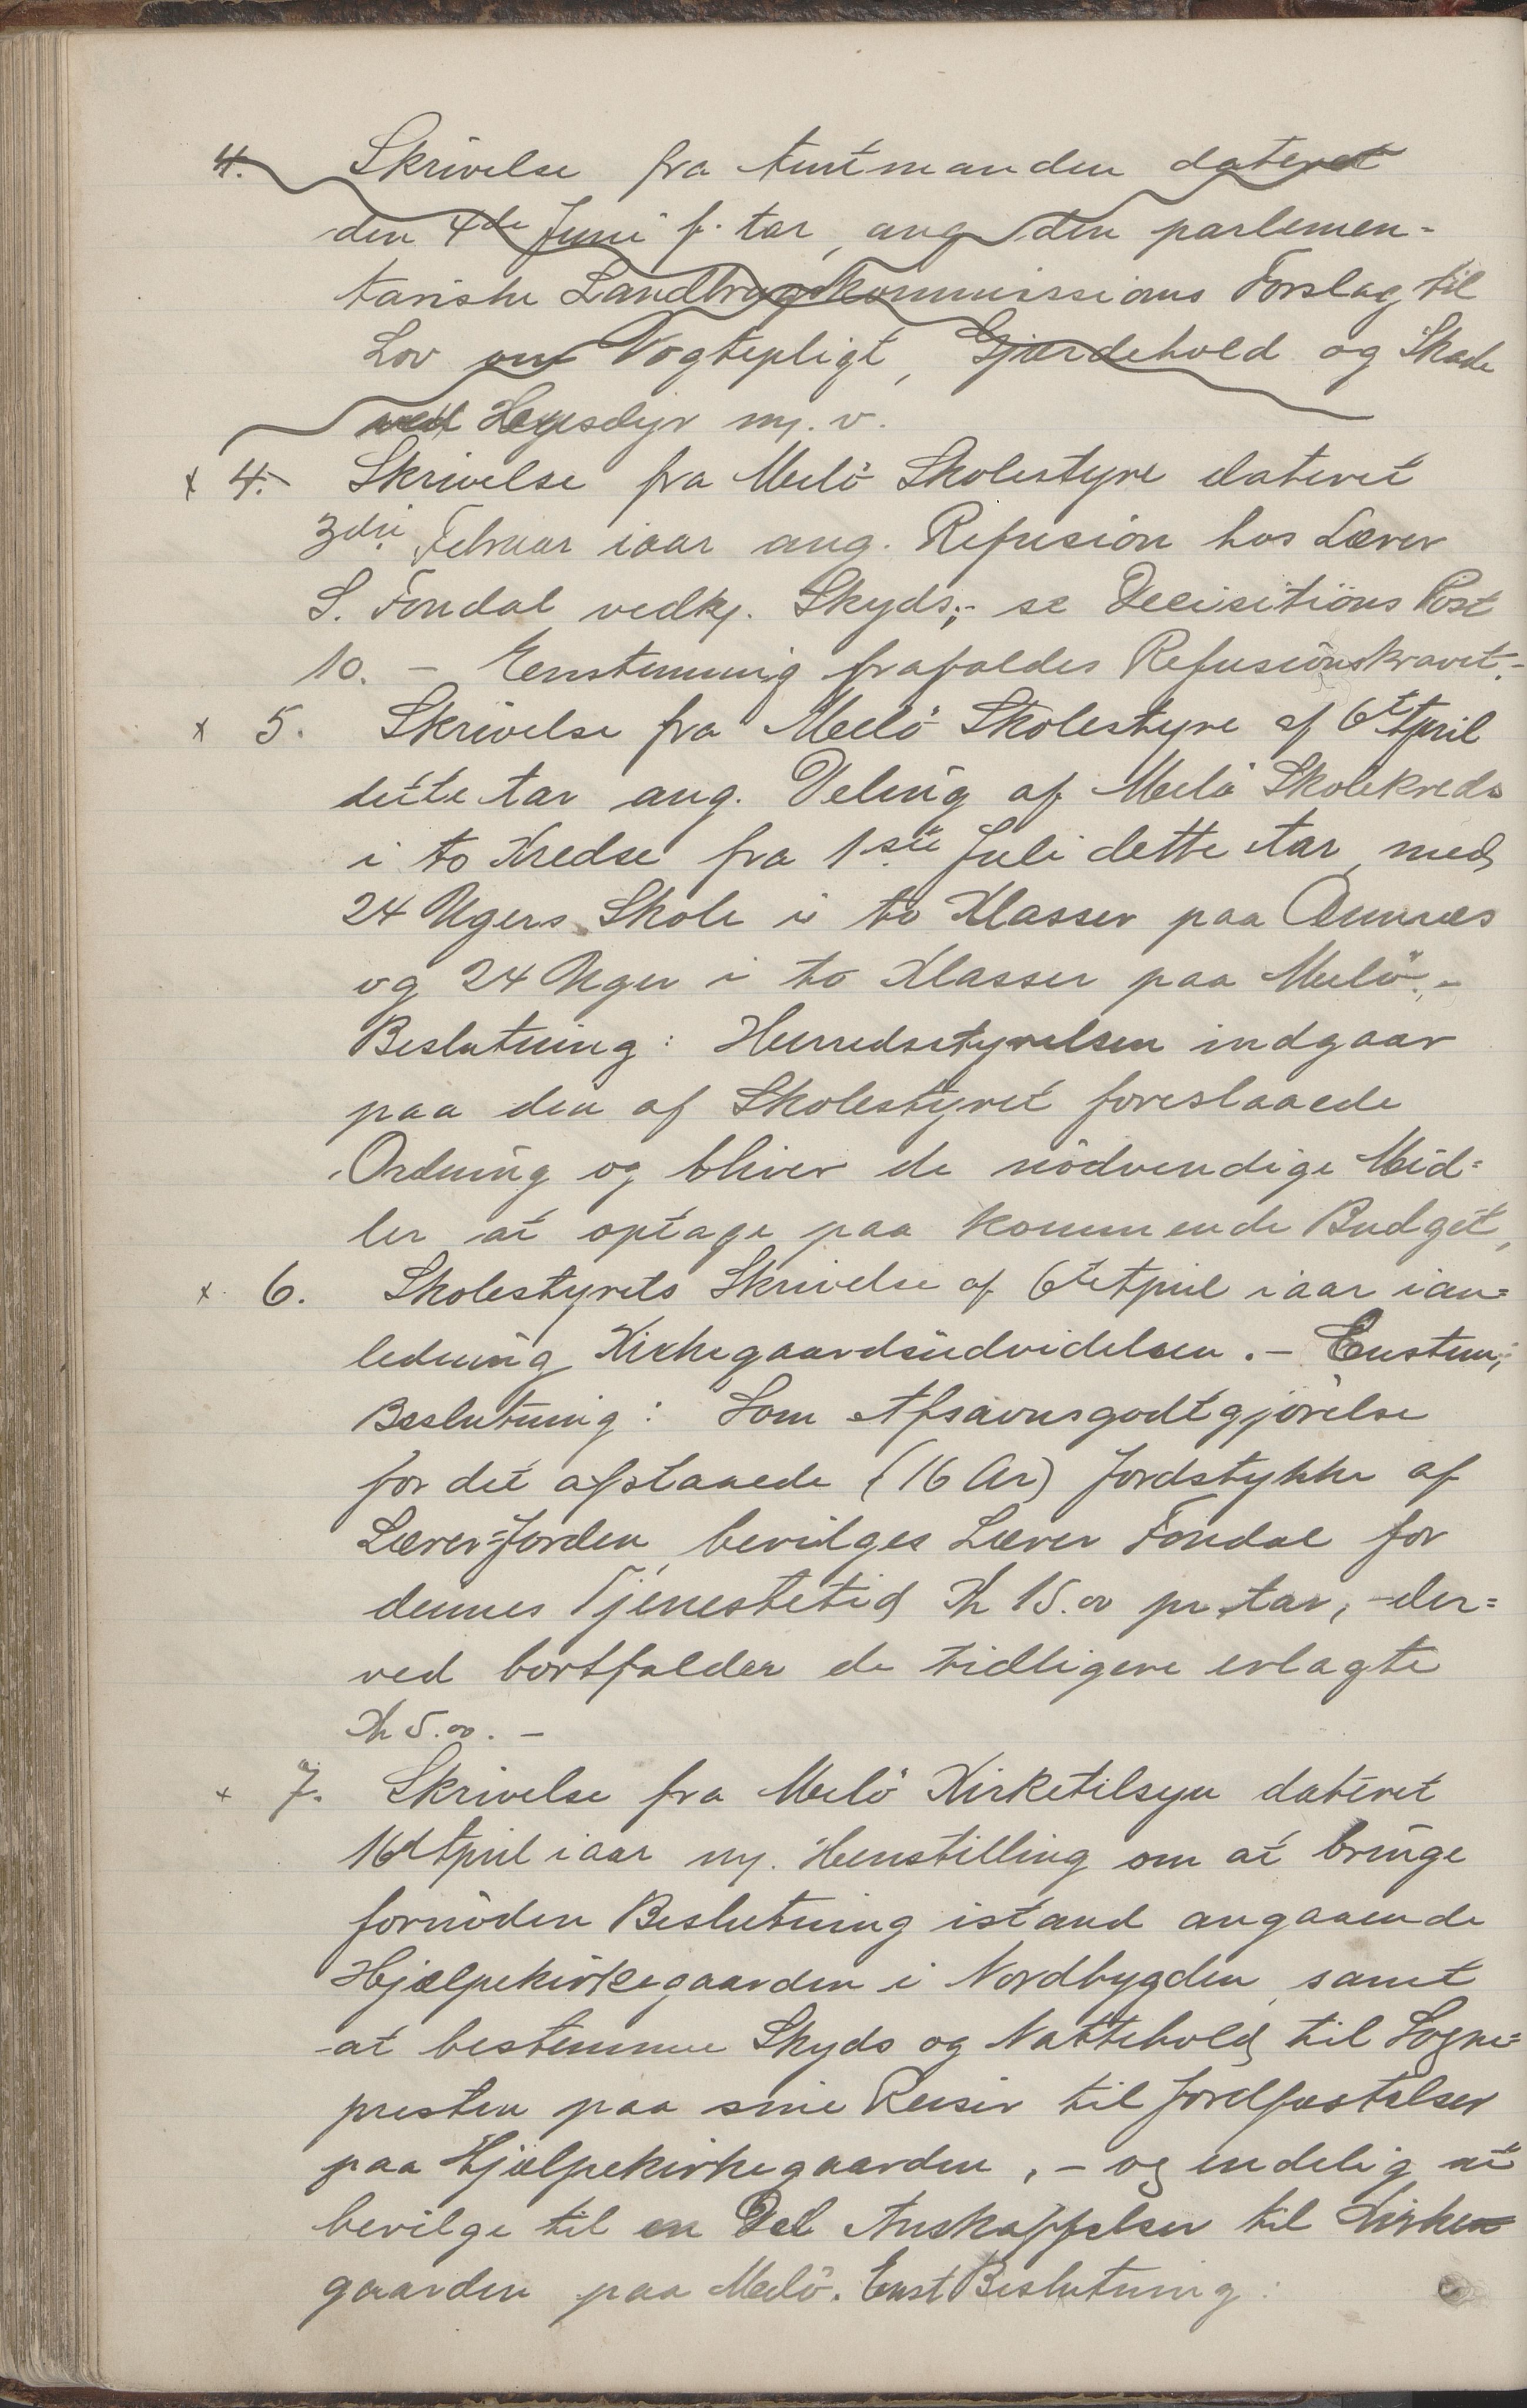 4. Skrivelse fra Amtmanden dateret
den 4de Juni f. Aar, ang den parlemen-
tariske Landbrugskommissions Forslag til
Lov om Vogtepligt, Gjærdehold og Skade
ved Husdyr m. v.
x 4. Skrivelse fra Melö Skolestyre dateret
3die Februar iaar ang. Refusion hos Lærer
S. Fondal vedk. Skyds; se Decisitions Post
10. – Enstemmig frafaldes Refusionskravet.-
x 5. Skrivelse fra Melö Skolestyre af 6te April
dette Aar ang. Deling af Melö Skolekreds
i to Kredse fra 1ste Juli dette Aar, med
24 Ugers Skole i to Klasser paa Amnæs
og 24 Uger i to Klasser paa Melö.-
Beslutning: Herredsstyrelsen indgaar
paa den af Skolestyret foreslaaede
Ordning og bliver de nödvendige Mid=
ler at optage paa kommende Budget,
x 6. Skolestyrets Skrivelse af 6te April iaar ian=
ledning Kirkegaardsudvidelsen. – Enstem;
Beslutning: Som Afsavnsgodtgjörelse
for det afstaaede (16 Ar) Jordstykke af
Lærer=Jorden bevilges Lærer Fondal for
dennes Tjenestetid Kr 15.00 pr Aar, – der=
ved bortfalder de tidligere erlagte
Kr 5.00. –
x 7. Skrivelse fra Melö Kirketilsyn dateret
16d April iaar m. Henstilling om at bringe
fornöden Beslutning istand angaaende
Hjælpekirkegaarden i Nordbygden, samt
at bestemme Skyds og Nattehold til Sogne=
presten paa sine Reiser til Jordfæstelser
paa Hjælpekirkegaarden, – og endelig at
bevilge til en Del Anskaffelser til Kirke
gaarden paa Melö. Enst Beslutning: